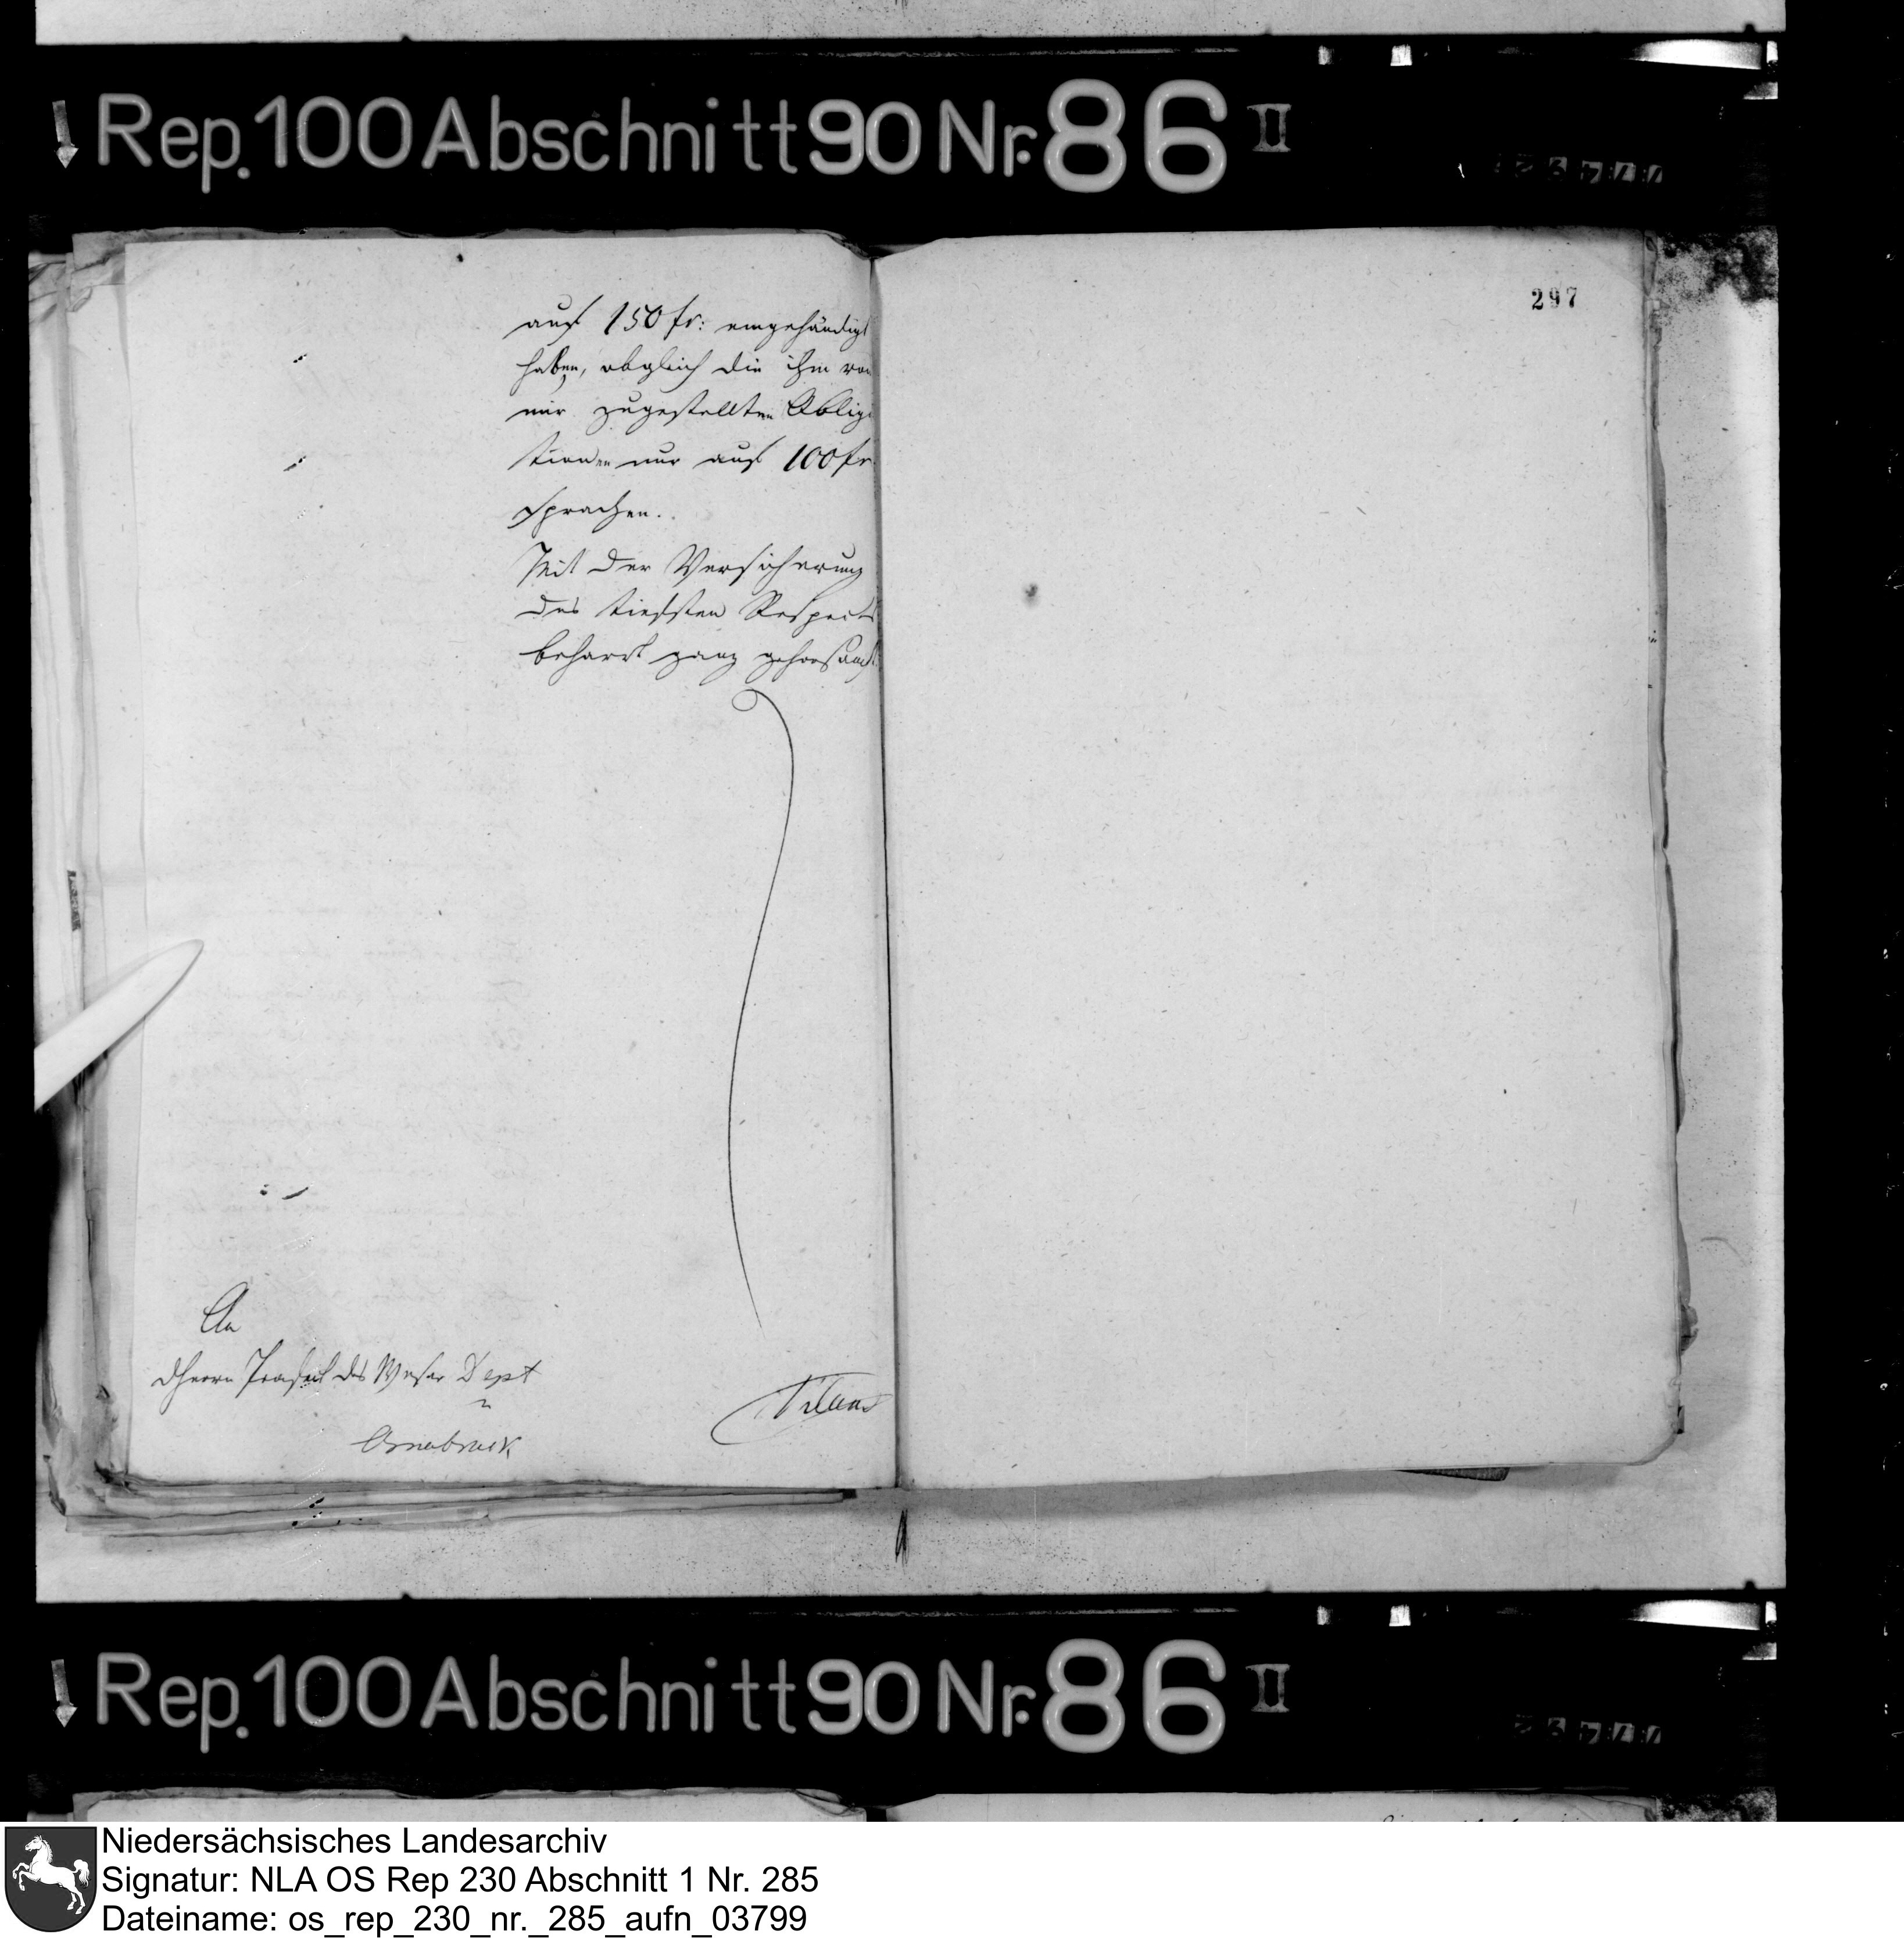 Rep. 100 Abschnitt 90 Nr. 86 II
297
auf 150 fr: eingehändigt
haben, obgleich die ihm von
mir zugestellten Obliga
tionen nur auf 100 fr.
sprachen.
Mit der Versicherung
des tiefsten Respects
beharrt ganz gehorsamst
An
dHerrn Praefect des Weser Dept
Osnabruck
Rep. 100 Abschnitt 90 Nr. 86 II
Niedersächsisches Landesarchiv
Signatur: NLA OS Rep 230 Abschnitt 1 Nr. 285
Dateiname: os_rep_230_nr._285_aufn_03799